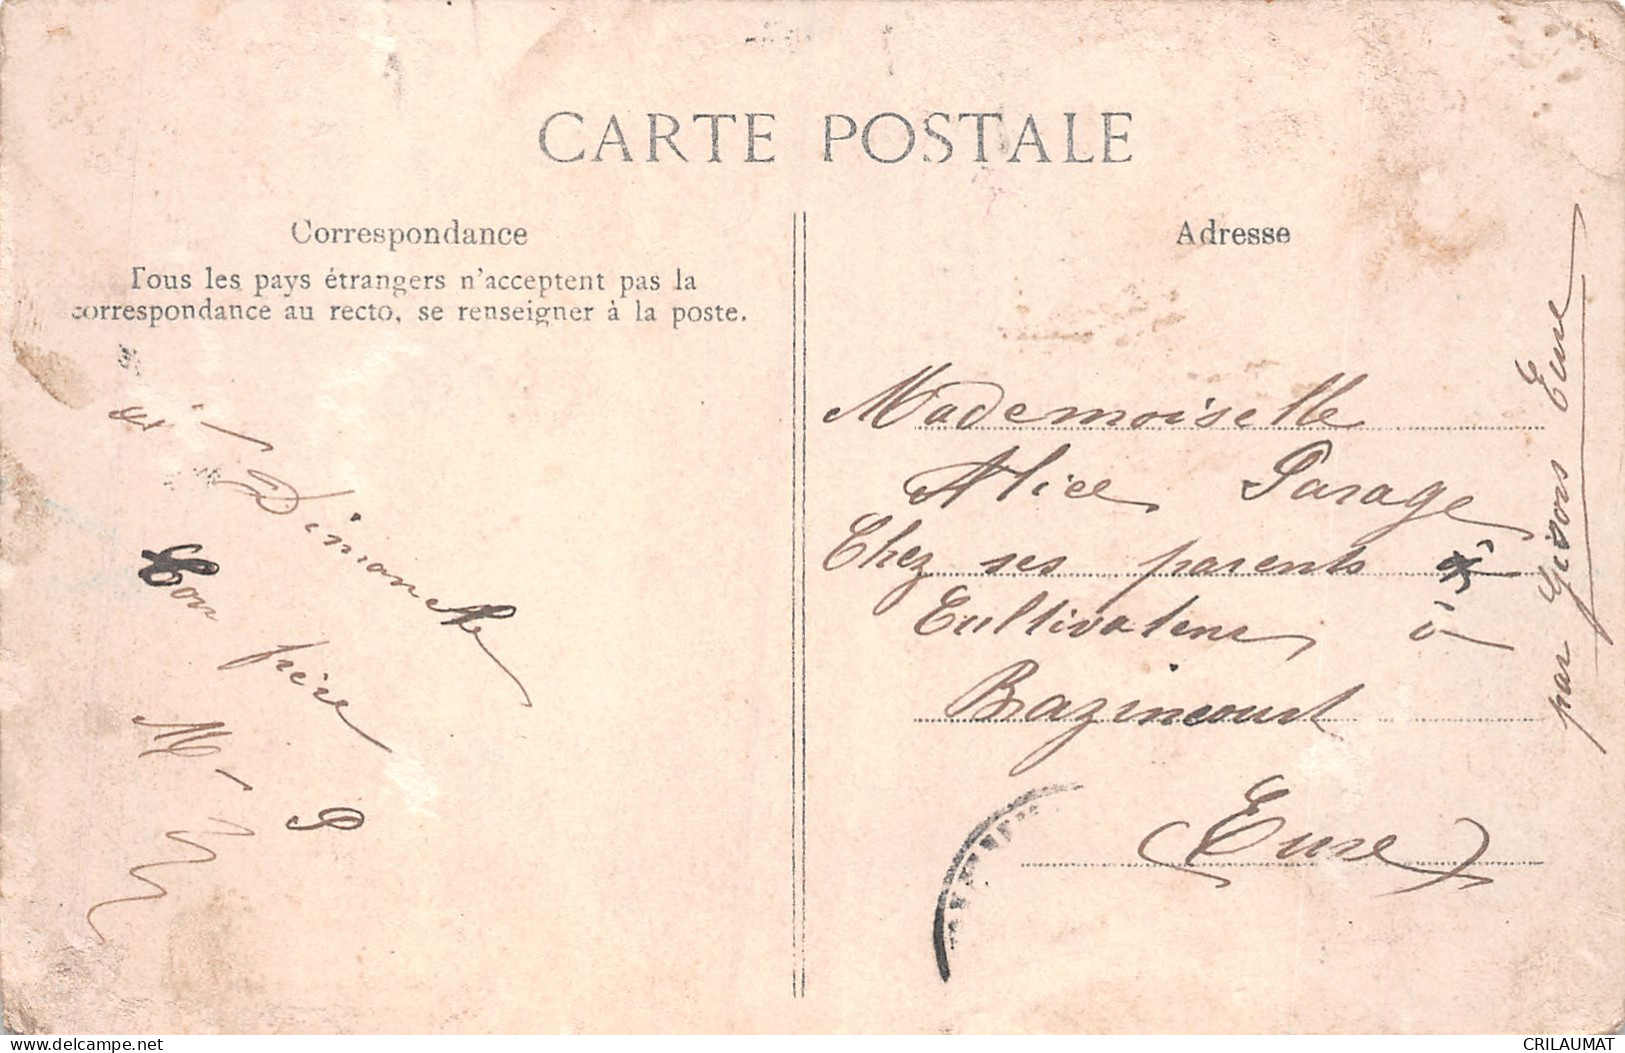 CARTE POSTALE
Correspondance
Tous les pays étrangers n'acceptent pas la
correspondance au recto, se renseigner à la poste.
à Dimanche
Ton frère
M - P
Adresse
Mademoiselle
Alice Parage
Chez ses parents
Cultivateur à
Bazincourt
(Eure)
par Gisors Eure
delcampe.net
CRILAUMAT